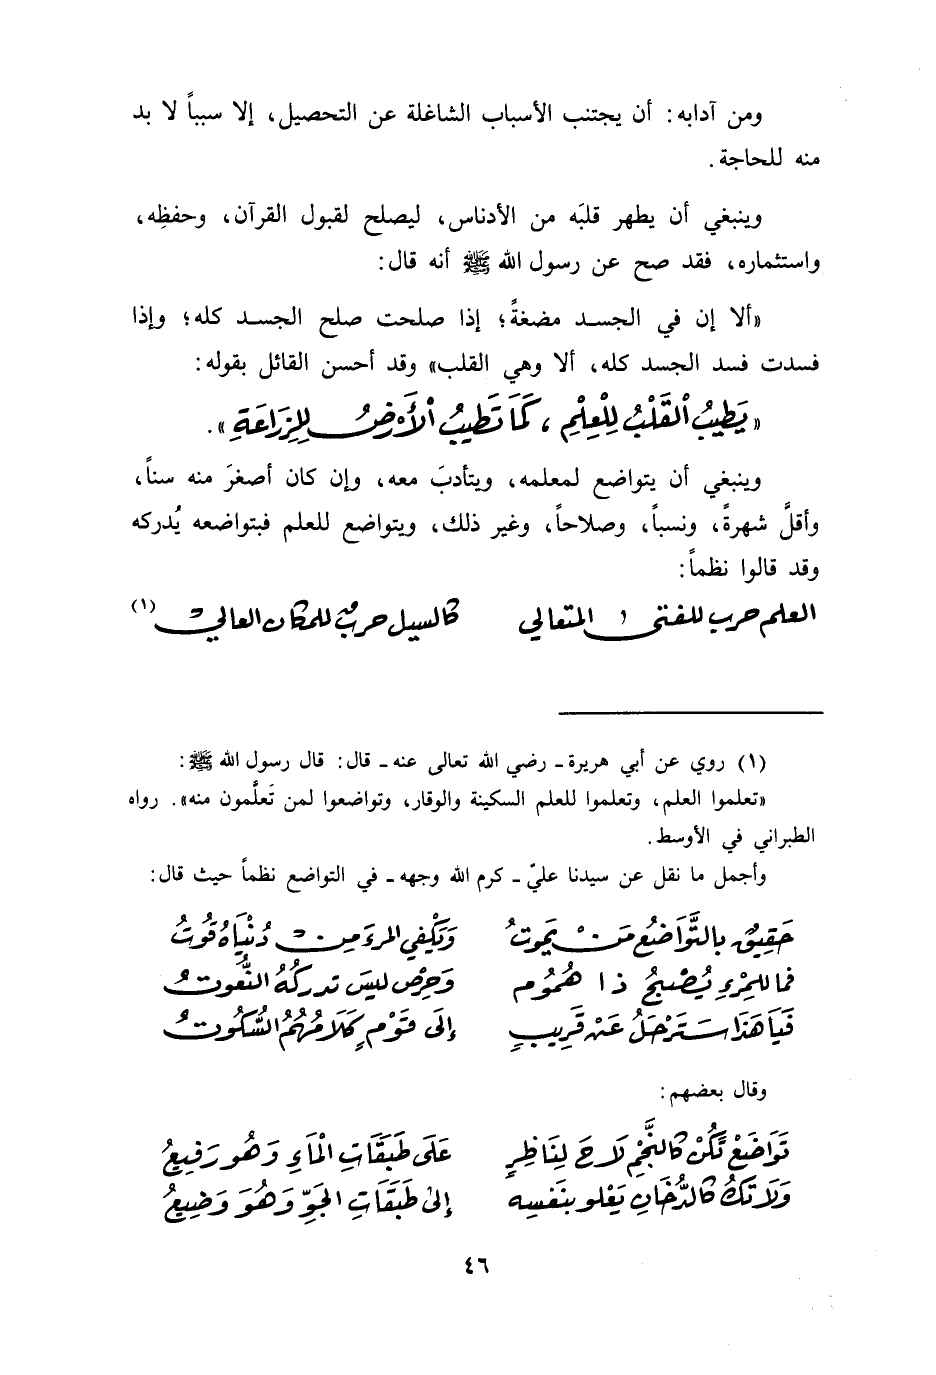 ومن آدابه: أن يجتنب الأسباب الشاغلة عن التحصيل، إلا سبباً لا بد
منه للحاجة.
وينبغي أن يطهر قلبَه من الأدناس، ليصلح لقبول القرآن، وحفظِه،
واستثماره، فقد صح عن رسول الله ﷺ أنه قال:
«ألا إن في الجسد مضغةً؛ إذا صلحت صلح الجسد كله؛ وإذا
فسدت فسد الجسد كله، ألا وهي القلب» وقد أحسن القائل بقوله:
«يَطِيبُ ٱلْقَلْبُ لِلْعِلْمِ، كَمَا تَطِيبُ ٱلْأَرْضُ لِلزِرَاعَةِ».
وينبغي أن يتواضع لمعلمه، ويتأدبَ معه، وإن كان أصغرَ منه سناً،
وأقلَّ شهرةً، ونسباً، وصلاحاً، وغير ذلك، ويتواضع للعلم فبتواضعه يُدركه
وقد قالوا نظماً:
العلم حرب للفتى المتعالي كالسيل حربٌ للمكان العالي (١)
(١) روي عن أبي هريرة ـ رضي الله تعالى عنه ـ قال: قال رسول الله ﷺ:
«تعلموا العلم، وتعلموا للعلم السكينة والوقار، وتواضعوا لمن تَعلَّمون منه». رواه
الطبراني في الأوسط.
وأجمل ما نقل عن سيدنا عليّ ـ كرم الله وجهه ـ في التواضع نظماً حيث قال:
حَقِيقٌ بِالتَّوَاضُعِ مَنْ يَمُوتُ وَيَكْفِي المَرءَ مِنْ دُنْيَاهُ قُوتُ
فما للمرْءِ يُصْبِحُ ذا هُمُومٍ وَحِرْصٍ ليسَ تدركُهُ النُّعوتُ
فَيَا هَذَا سَتَرْحَلُ عَنْ قَرِيبٍ إلَى قَوْمٍ كَلَامُهُمُ السُّكُوتُ
وقال بعضهم:
تَوَاضَعْ تَكُنْ كَالنَّجْمِ لَاحَ لِنَاظِرٍ عَلَى طَبَقَاتِ الْمَاءِ وَهُو رَفِيعُ
وَلَا تَكُ كَالدُّخَانِ يَعْلُو بِنَفسِهِ إلَى طَبَقَاتِ الجَوِّ وَهُوَ وَضِيعُ
٤٦